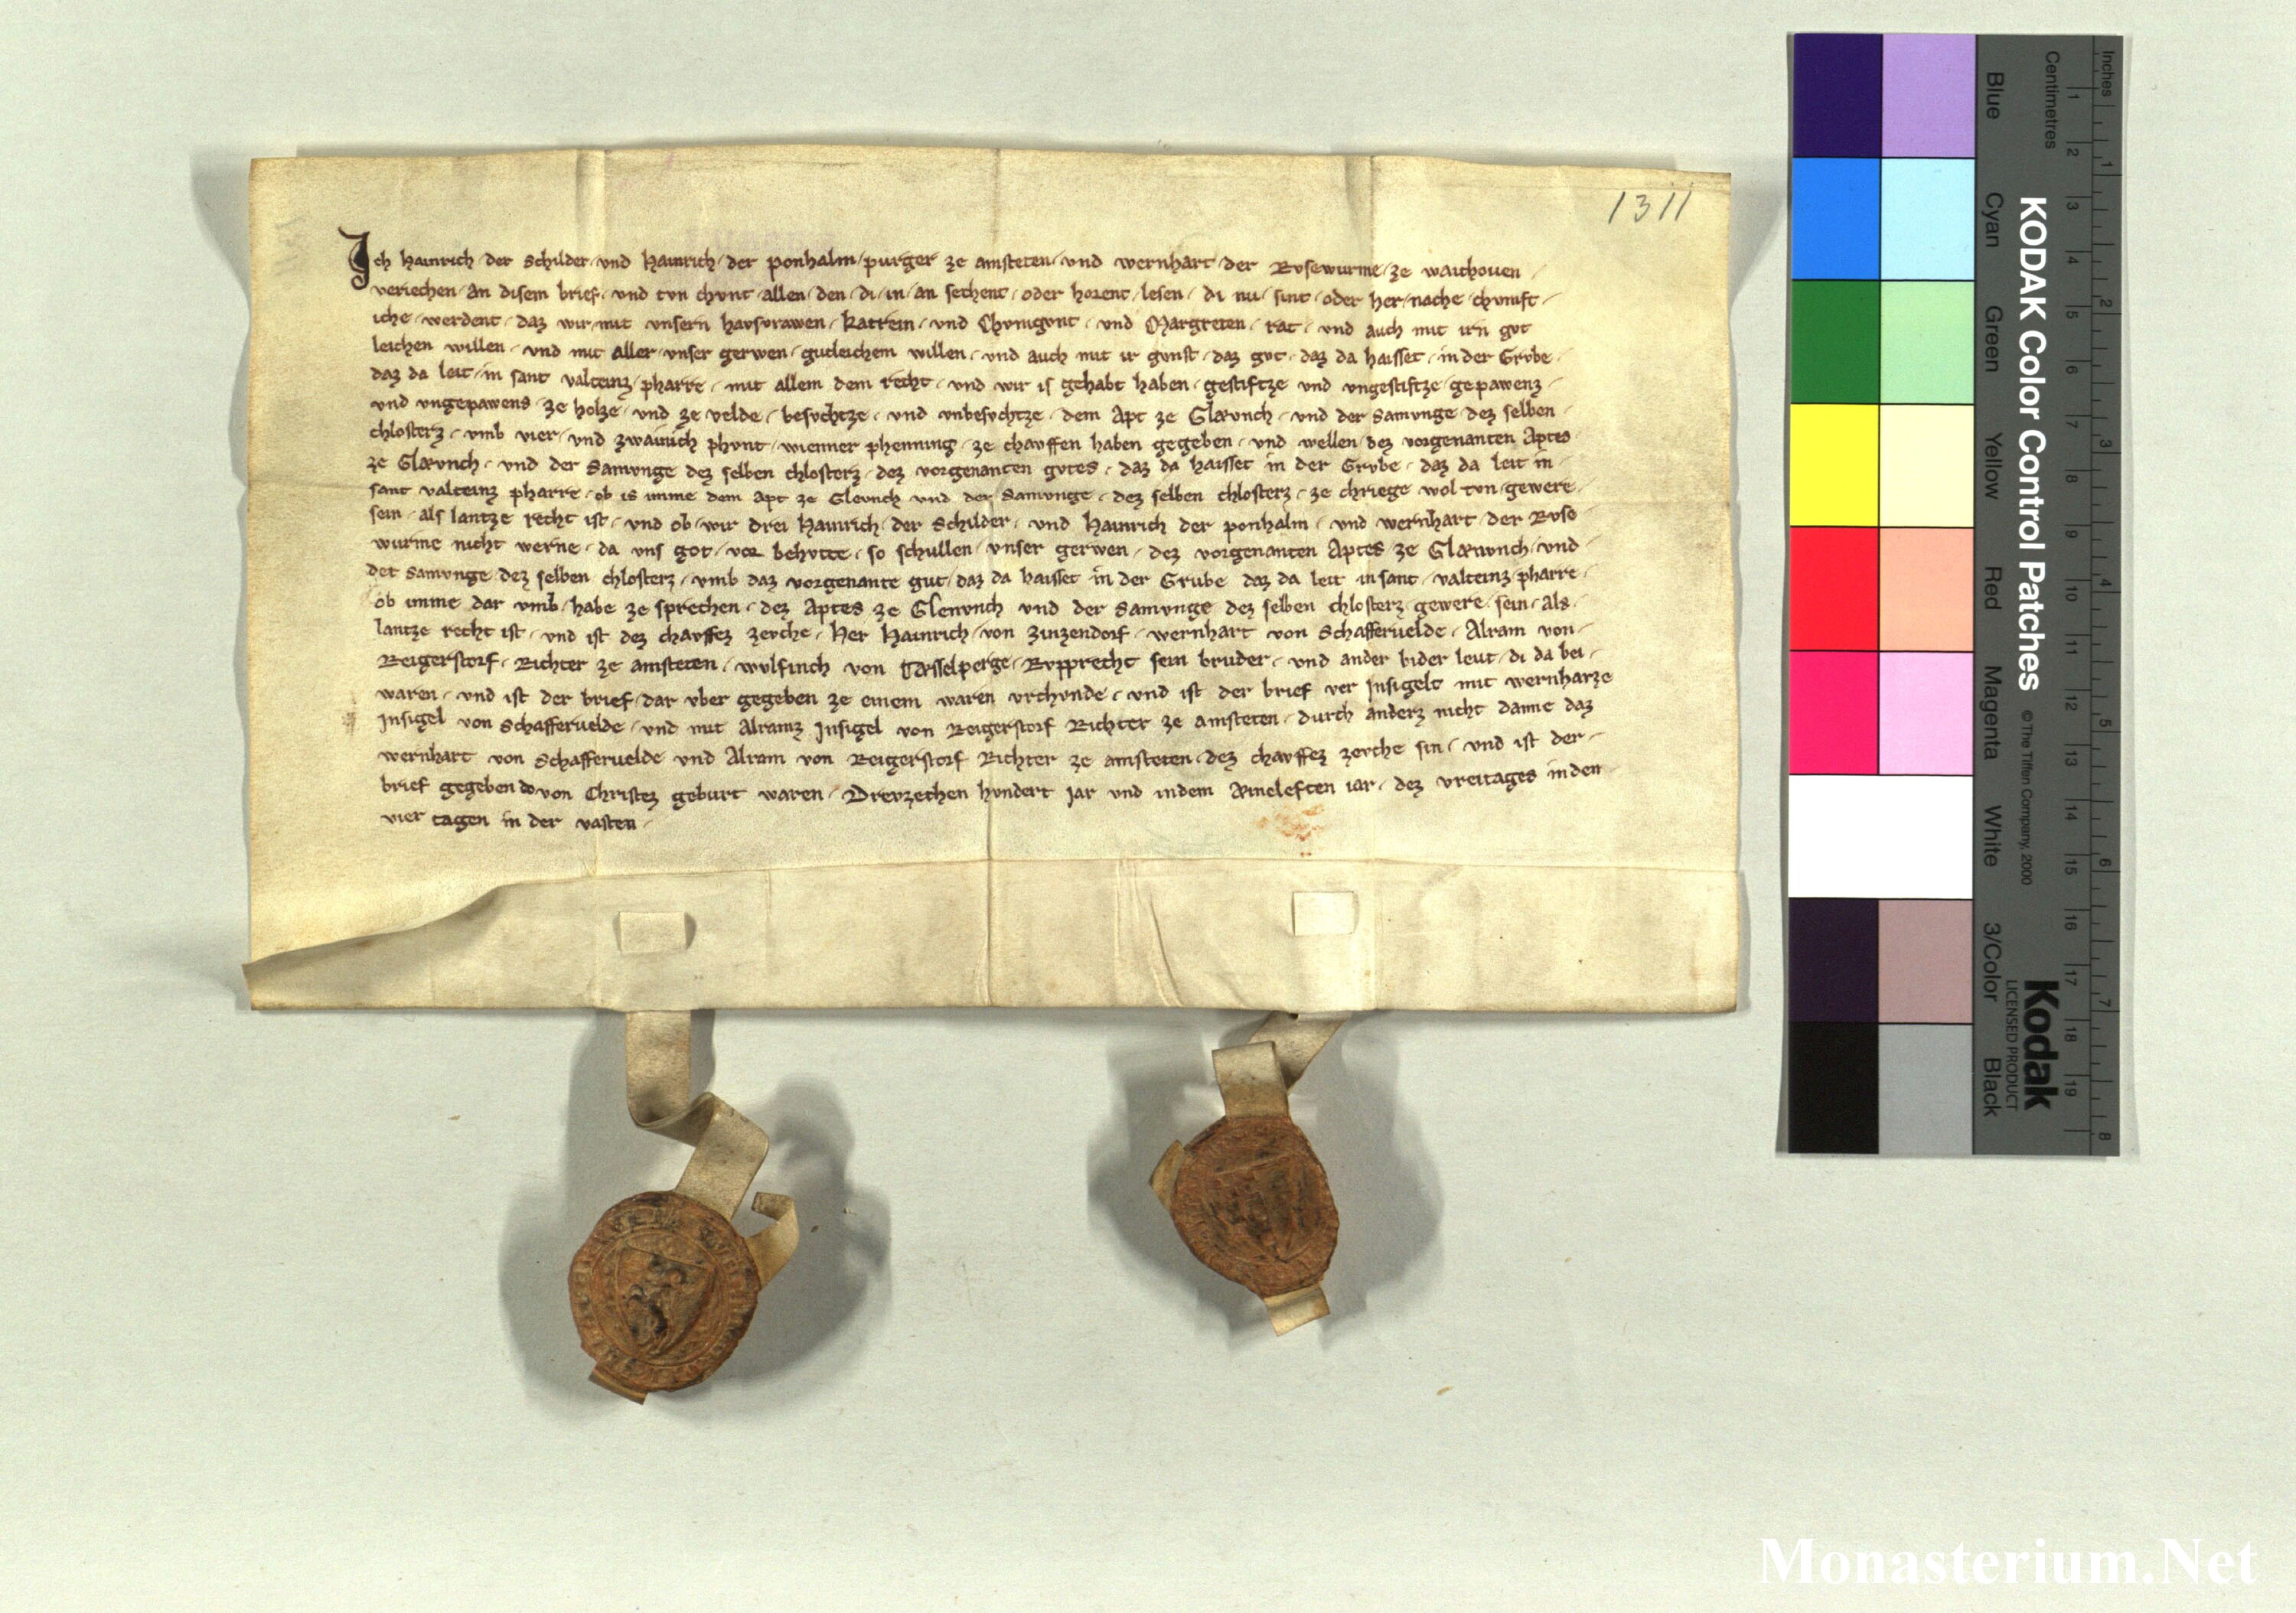 1311
Ich Hainrich der Schilder und Hainrich der ponhalm purger ze amsteten und wernhart der Rvsewurme ze waithouen
veriechen an disem brief und tvn chvnt allen den di in an sechent oder horent lesen di nu sint oder her nache chvmft
iche werdent daz wir mit unsern havsvrawen katrein und Chvnigvnt und Margreten rat und auch mit irn gvt
leichen willen und mit aller unser gerwen gutleichem willen und auch mit ir gvnst daz gvt daz da haisset in der Grvbe
daz da leit in sant valteinz pharre mit allem dem recht und wir is gehabt haben gestiftze und ungestiftze gepawenz
und ungepawens ze holze und ze velde besvchtze und unbesvchtze dem Apt ze Glævnch und der Samvnge dez selben
chlosterz vmb vier und zwainich phvnt wienner phenning ze chavffen haben gegeben und wellen dez vorgenanten Aptes
ze Glævnch und der Samvnge dez selben chlosterz dez vorgenanten gvtes daz da haisset in der Grvbe daz da leit in
sant valteinz pharre ob is imme dem Apt ze Glevnch und der Samvnge dez selben chlosterz ze chriege wol tvn gewere
sein als lantze recht ist und ob wir drei Hainrich der Schilder und Hainrich der ponhalm und wernhart der Rvse
wurme nicht werne da uns got vor behvtte so schullen unser gerwen dez vorgenanten Aptes ze Glænvnch und
der Samvnge dez selben chlosterz vmb daz vorgenante gut daz da haisset in der Grube daz da leit in sant valteinz pharre
ob imme dar vmb habe ze sprechen dez Aptes ze Glenvnch und der Samvnge dez selben chlosterz gewere sein als
lantze recht ist und ist dez chavffez zevche Her Hainrich von Zinzendorf wernhart von Schafferuelde Alram von
Reigerstorf Richter ze amsteten wulfinch von Tæsselperge Rvpprecht sein bruder und ander bider leut di da bei
waren und ist der brief dar vber gegeben ze einem waren vrchvnde und ist der brief ver Insigelt mit wernharze
Insigel von Schafferuelde und mit Alramz Insigel von Reigerstorf Richter ze amsteten durch anderz nicht danne daz
wernhart von Schafferuelde und Alram von Reigerstorf Richter ze amsteten dez chavffez zevche sin und ist der
brief gegeben do von Christez geburt waren Drevzechen hvndert Jar und in dem Æineleften iar dez vreitages in den
vier tagen in der vasten
Inches
Centimetres
KODAK Color Control Patches
© The Tiffen Company, 2000
Kodak
LICENSED PRODUCT
Blue
Cyan
Green
Yellow
Red
Magenta
White
3/Color
Black
1 2 3 4 5 6 7 8 9 10 11 12 13 14 15 16 17 18 19
1 2 3 4 5 6 7 8
Monasterium.Net